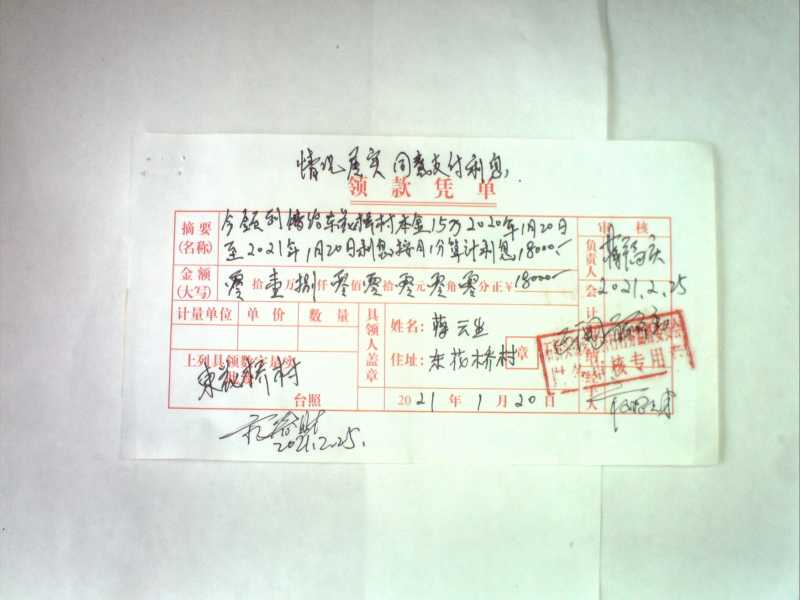 情况属实 同意支付利息.
领款凭单
摘要
(名称)
今领到借给东茂桥村本金15万2020年1月20日
至2021年1月20日利息按月1分算计利息18000.-
审核
负责人
金额
(大写)
零拾壹万捌仟零佰零拾零元零角零分正¥18000.-
会计
2021.2.25
计量单位 单价 数量
具领人盖章
姓名: 蒋云生
住址: 东茂桥村
章
核专用
上列具领数字是实
东茂桥村
台照
2021年1月20日
人
2021.2.25.